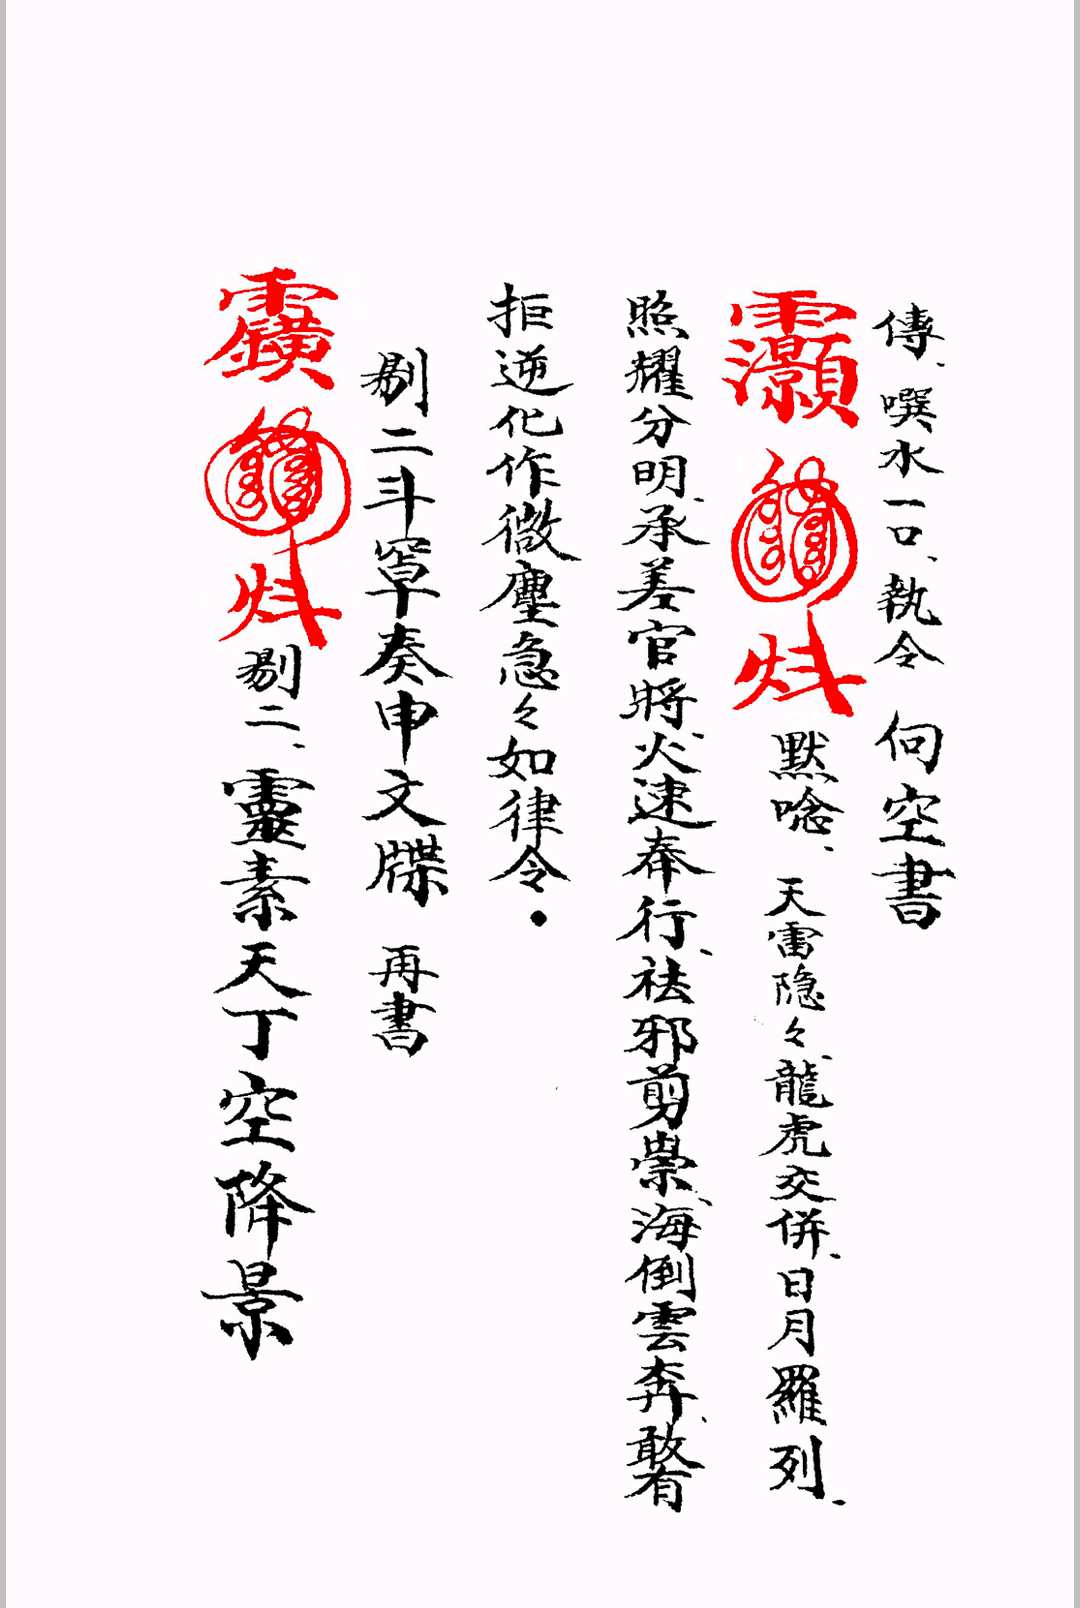 傳、噀水一口、執令 向空書
默唸、天雷隐々、龍虎交併、日月羅列、
照耀分明、承差官將、火速奉行、祛邪剪祟、海倒雲奔、敢有
拒逆化作微塵急々如律令・
剔二斗罩奏申文牒 再書
剔二、靈素天丁空降景